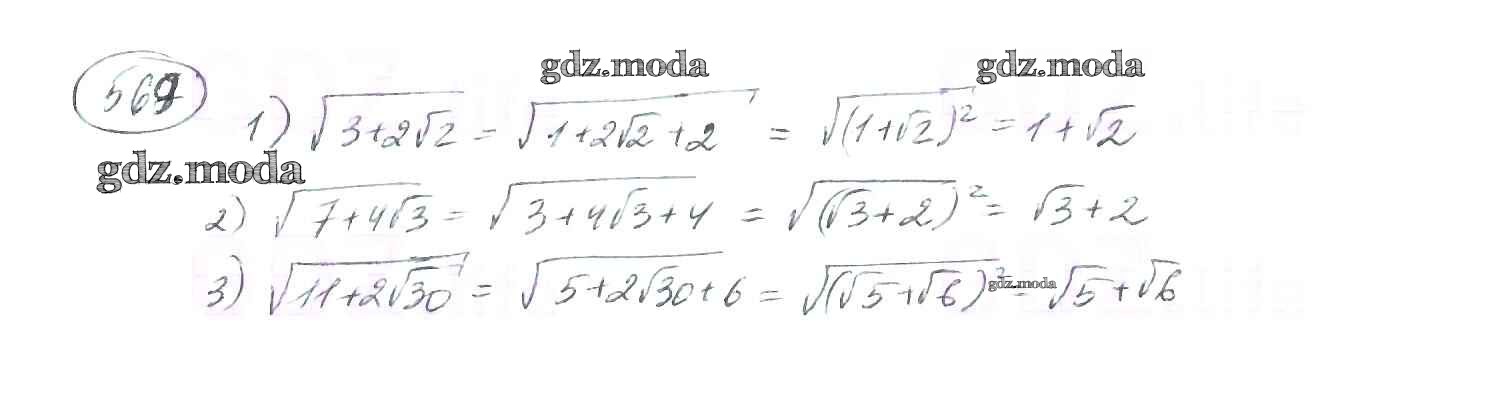 569
gdz.moda gdz.moda
1) √(3+2√2) = √(1+2√2+2) = √((1+√2)²) = 1+√2
gdz.moda
2) √(7+4√3) = √(3+4√3+4) = √((√3+2)²) = √3+2
3) √(11+2√30) = √(5+2√30+6) = √((√5+√6)²) = √5+√6
gdz.moda